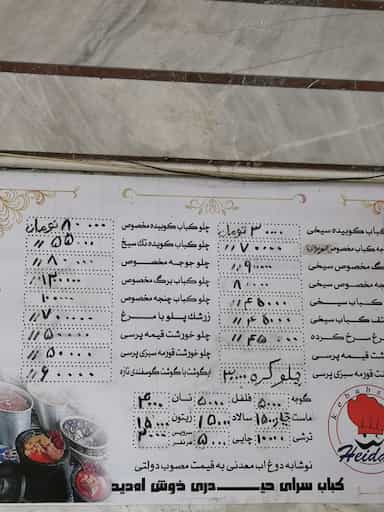 کباب کوبیده سیخی ۳۰۰۰۰ تومان
چلو کباب کوبیده مخصوص ۸۰۰۰۰ تومان
چلو کباب کوبیده تک سیخ ۵۵۰۰۰ //
چلو جوجه مخصوص ۸۰۰۰۰ //
چلو کباب برگ مخصوص ۱۳۰۰۰۰ //
چلو کباب چنجه مخصوص
زرشک پلو با مرغ ۷۰۰۰۰ //
چلو خورشت قیمه پرسی ۵۰۰۰۰ //
چلو خورشت قورمه سبزی پرسی ۵۰۰۰۰ //
آبگوشت با گوشت گوسفندی تازه ۶۰۰۰۰ //
مخصوص ۷۰۰۰۰ //
مخصوص
مخصوص
کباب سیخی ۴۵۰۰۰ //
کباب سیخی ۴۵۰۰۰ //
سرخ کرده ۴۵۰۰۰ //
قیمه پرسی
قورمه سبزی پرسی چلو کره ۳۰۰۰۰
گوجه ۵۰۰۰ فلفل ۵۰۰۰ نان ۴۰۰۰
ماست سالاد ۱۵۰۰۰ زیتون ۱۵۰۰۰
ترشی ۱۰۰۰۰ چایی ۵۰۰۰
نوشابه دوغ آب معدنی به قیمت مصوب دولتی
کباب سرای حیدری خوش آمدید
Kebabs
Heida